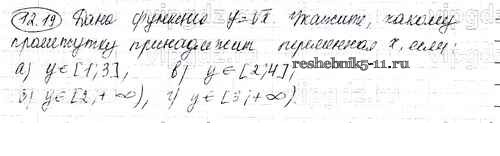 12.19 Дана функция y=√x. Укажите, какому
промежутку принадлежит переменная x, если:
а) y∈[1;3], в) y∈[2;4],
б) y∈[2;+∞), г) y∈[3;+∞)
reshebnik5-11.ru